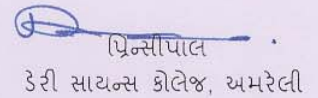 પ્રિન્સીપાલ
ડેરી સાયન્સ કોલેજ, અમરેલી